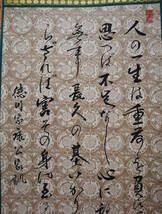 人の一生は重荷を負
思へば不足なし心に
無事長久の基いかり
らざれば害その身に至
徳川家康公遺訓